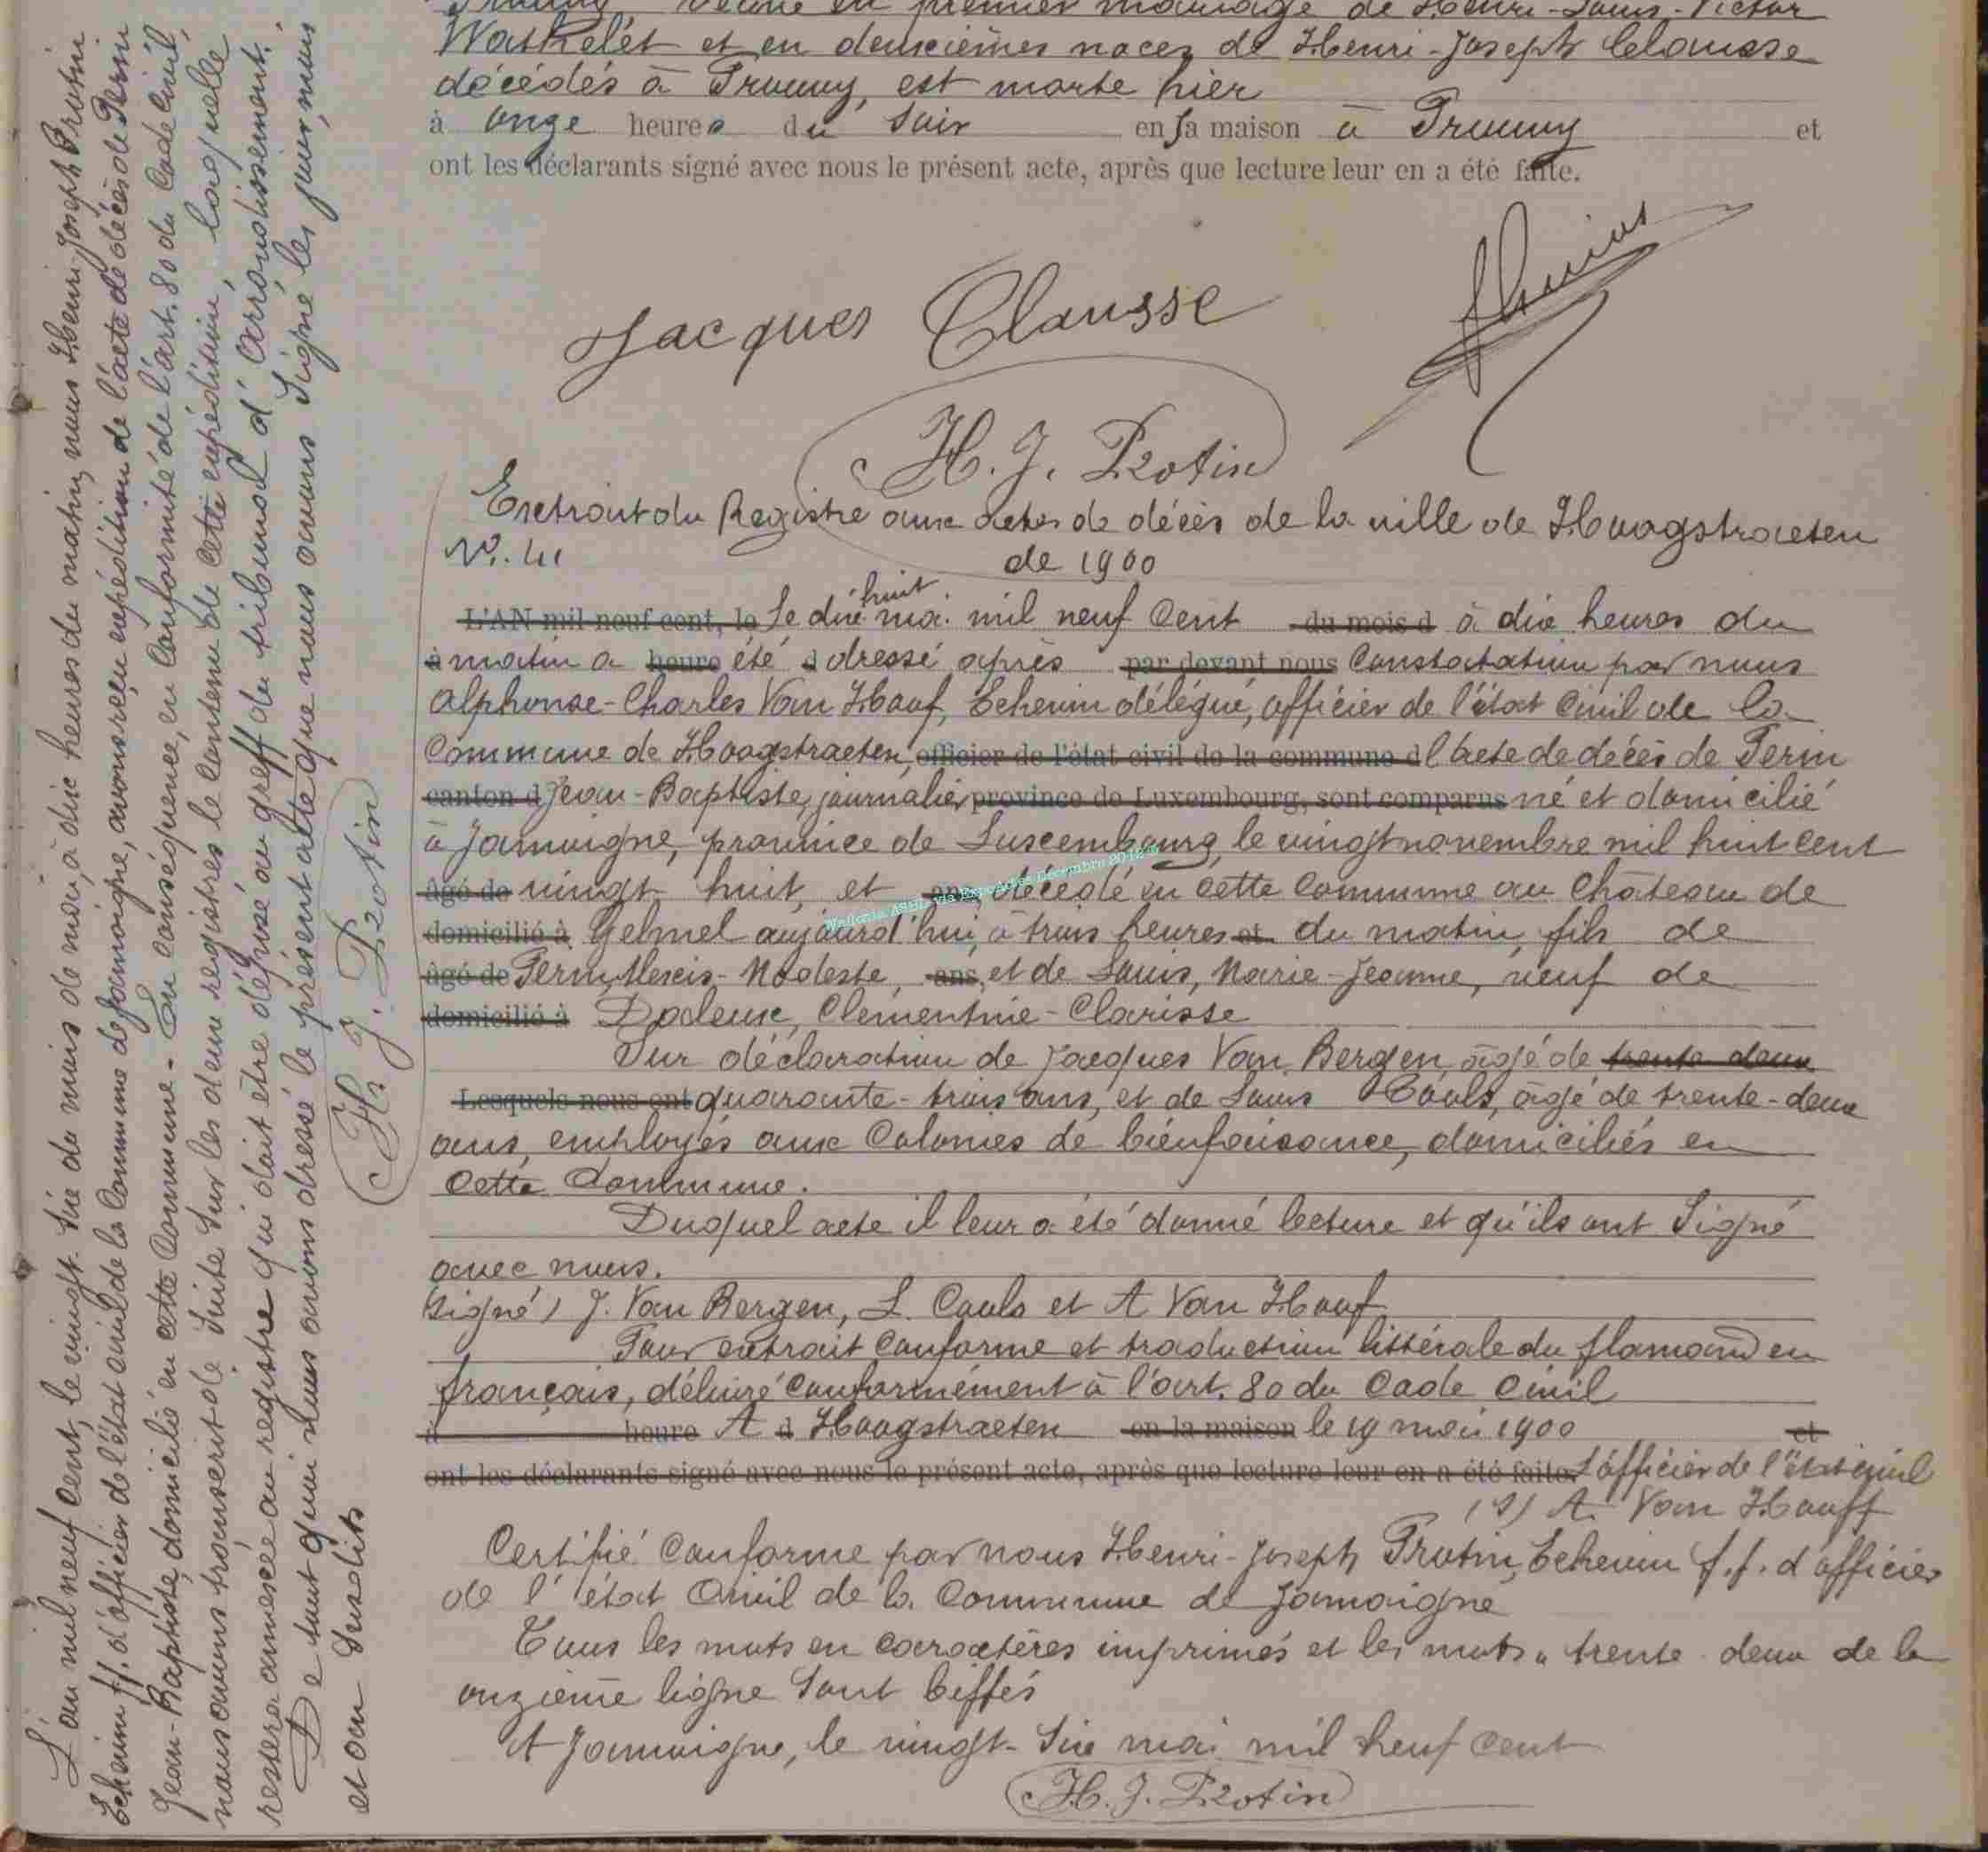 Prouvy veuve en premier mariage de Henri-Louis-Victor
Wathelet et en deuxièmes noces de Henri-Joseph Clausse
décédés à Prouvy, est morte hier
à onze heures du soir en sa maison à Prouvy et
ont les déclarants signé avec nous le présent acte, après que lecture leur en a été faite.
Jacques Clausse
H. J. Protin
Extrait du Registre aux actes de décès de la ville de Hoogstraeten
No. 41 de 1900
L'AN mil neuf cent, le Le dix huit mai mil neuf cent du mois d à dix heures du
à matin a heure été d dressé après par devant nous constatation par nous
Alphonse-Charles Van Hoof, Echevin délégué, officier de l'état civil de la
Commune de Hoogstraeten, officier de l'état civil de la commune d l'acte de décès de Perin
canton d Jean-Baptiste, journalier province de Luxembourg, sont comparus né et domicilié
à Jamoigne, province de Luxembourg, le vingt novembre mil huit cent
âgé de vingt-huit, et ans, décédé en cette commune au Château de
domicilié à Gelmel aujourd'hui, à trois heures et du matin, fils de
âgé de Perin, Alexis-Modeste, ans, et de Louis, Marie-Jeanne, veuf de
domicilié à Dodeux, Clémentine-Clarisse
Sur déclaration de Jacques Van Bergen, âgé de trente deux
Lesquels nous ont quarante-trois ans, et de Louis Cools, âgé de trente-deux
ans, employés aux Colonies de bienfaisance, domiciliés en
cette Commune.
Duquel acte il leur a été donné lecture et qu'ils ont signé
avec nous.
(signé) J. Van Bergen, L. Cools et A Van Hoof
Pour extrait conforme et traduction littérale du flamand en
français, délivré conformément à l'art. 80 du Code Civil
à heure A d Hoogstraeten en la maison le 19 mai 1900 et
ont les déclarants signé avec nous le présent acte, après que lecture leur en a été faite. L'officier de l'état civil
(S) A. Van Hooff
Certifié conforme par nous Henri-Joseph Protin, Echevin f.f. d'officier
de l'état Civil de la Commune de Jamoigne
Tous les mots en caractères imprimés et les mots "trente deux de la
onzième ligne sont biffés
A Jamoigne, le vingt-six mai mil neuf cent
H. J. Protin
L'an mil neuf cent, le vingt-six du mois de mai, à dix heures du matin, nous Henri-Joseph Protin
Echevin ff. d'officier de l'état civil de la Commune de Jamoigne, avons reçu expédition de l'acte de décès de Perin
Jean-Baptiste, domicilié en cette Commune. - En conséquence, en conformité de l'art. 80 du Code Civil,
nous avons transcrit de suite sur les deux registres le contenu de cette expédition, laquelle
restera annexée au registre qui doit être déposé au greff du tribunal d'arrondissement.
De tout quoi nous avons dressé le présent acte que nous avons signé les jour, mois
et an susdits
H. J. Protin
Wallonia ASBL via ExpoActes Décembre 2012 ©